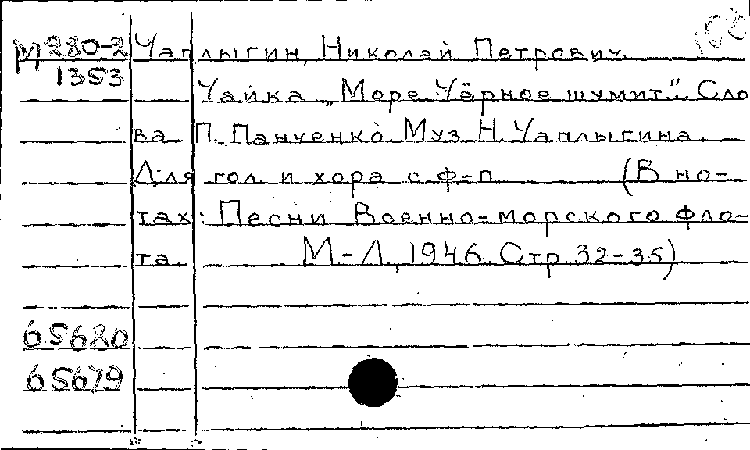 М 280-2 Чаплыгин, Николай Петрович.
1353
Чайка „Море Чёрное шумит". Сло-
ва П. Панченко Муз Н. Чаплыгина.
Для гол и хора с ф-п (В но-
тах: Песни Военно-морского фло-
та. М-Л, 1946. Стр 32-35)
65680
65679